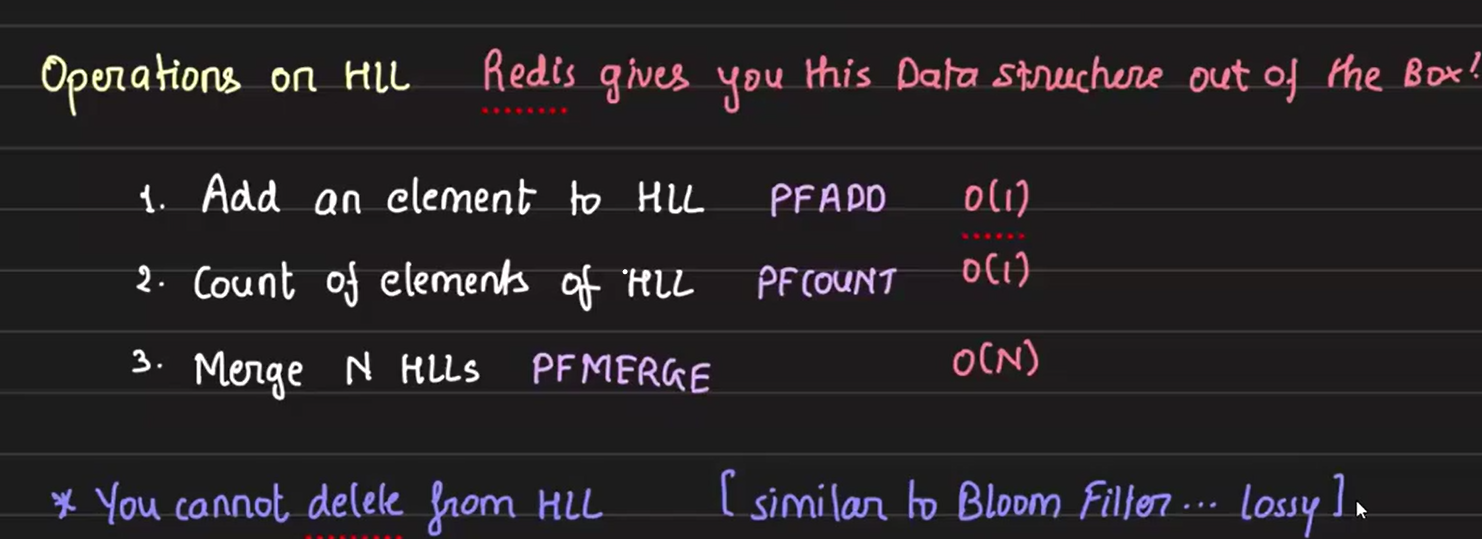 Operations on HLL Redis gives you this Data structure out of the Box!
1. Add an element to HLL PFADD O(1)
2. Count of elements of HLL PFCOUNT O(1)
3. Merge N HLLs PFMERGE O(N)
* You cannot delete from HLL [similar to Bloom Filter... lossy]